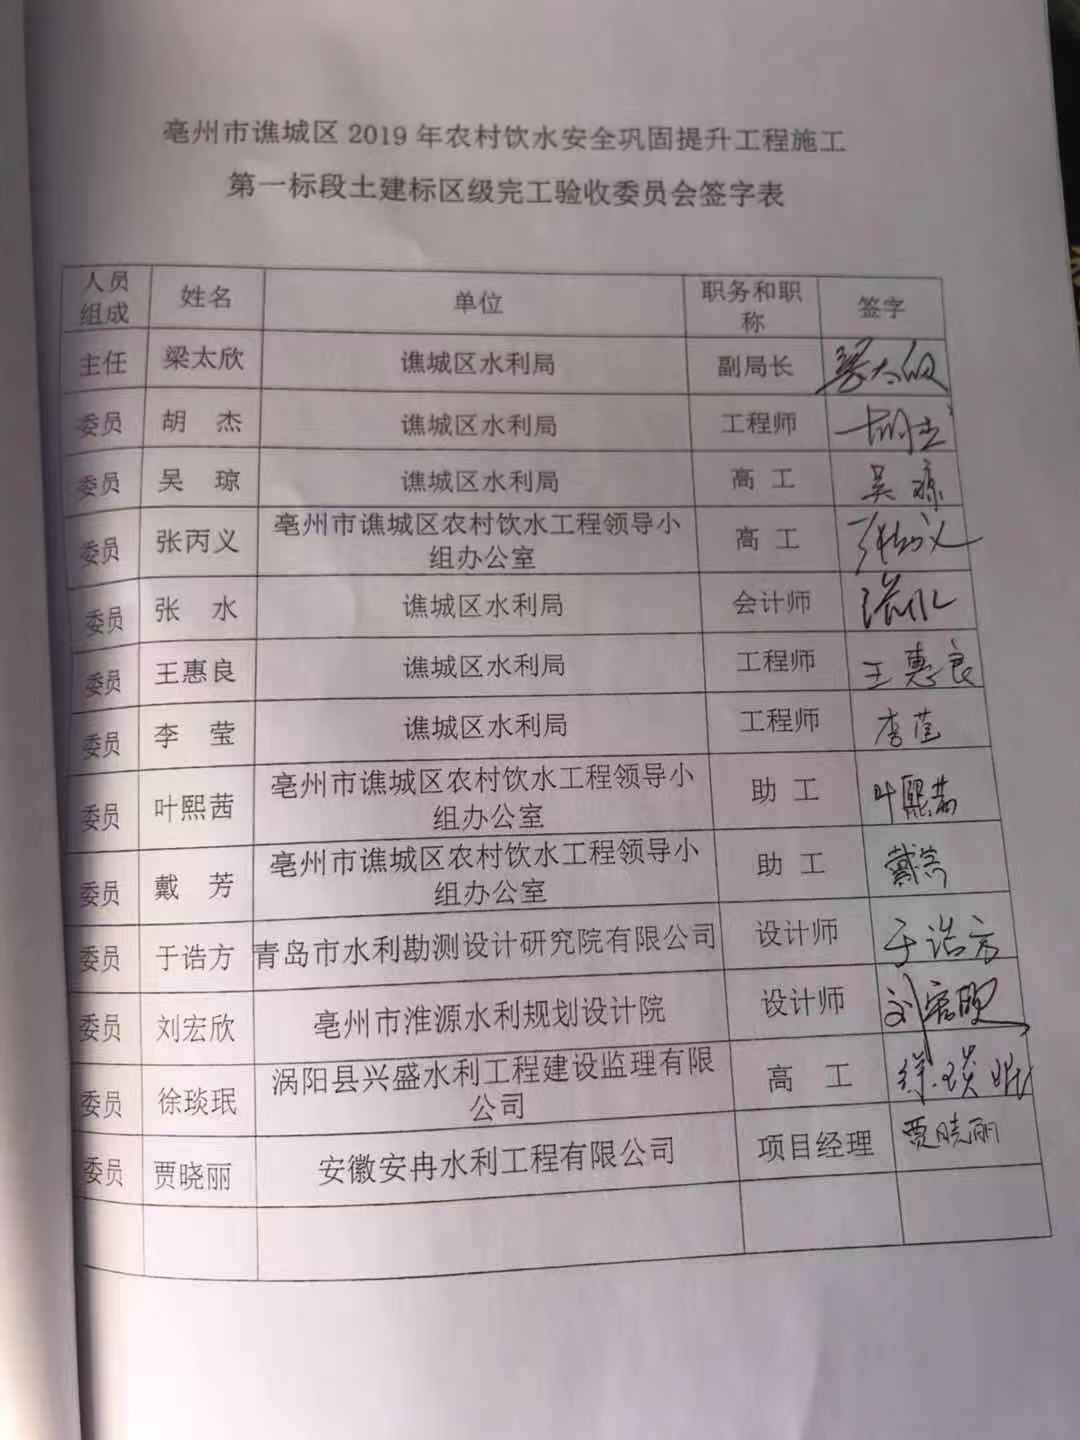 亳州市谯城区2019年农村饮水安全巩固提升工程施工
第一标段土建标区级完工验收委员会签字表
人员组成 姓名 单位 职务和职称 签字
主任 梁太欣 谯城区水利局 副局长 梁太欣
委员 胡杰 谯城区水利局 工程师 胡杰
委员 吴琼 谯城区水利局 高工 吴琼
委员 张丙义 亳州市谯城区农村饮水工程领导小组办公室 高工 张丙义
委员 张水 谯城区水利局 会计师 张水
委员 王惠良 谯城区水利局 工程师 王惠良
委员 李莹 谯城区水利局 工程师 李莹
委员 叶熙茜 亳州市谯城区农村饮水工程领导小组办公室 助工 叶熙茜
委员 戴芳 亳州市谯城区农村饮水工程领导小组办公室 助工 戴芳
委员 于诰方 青岛市水利勘测设计研究院有限公司 设计师 于诰方
委员 刘宏欣 亳州市淮源水利规划设计院 设计师 刘宏欣
委员 徐琰珉 涡阳县兴盛水利工程建设监理有限公司 高工 徐琰珉
委员 贾晓丽 安徽安冉水利工程有限公司 项目经理 贾晓丽